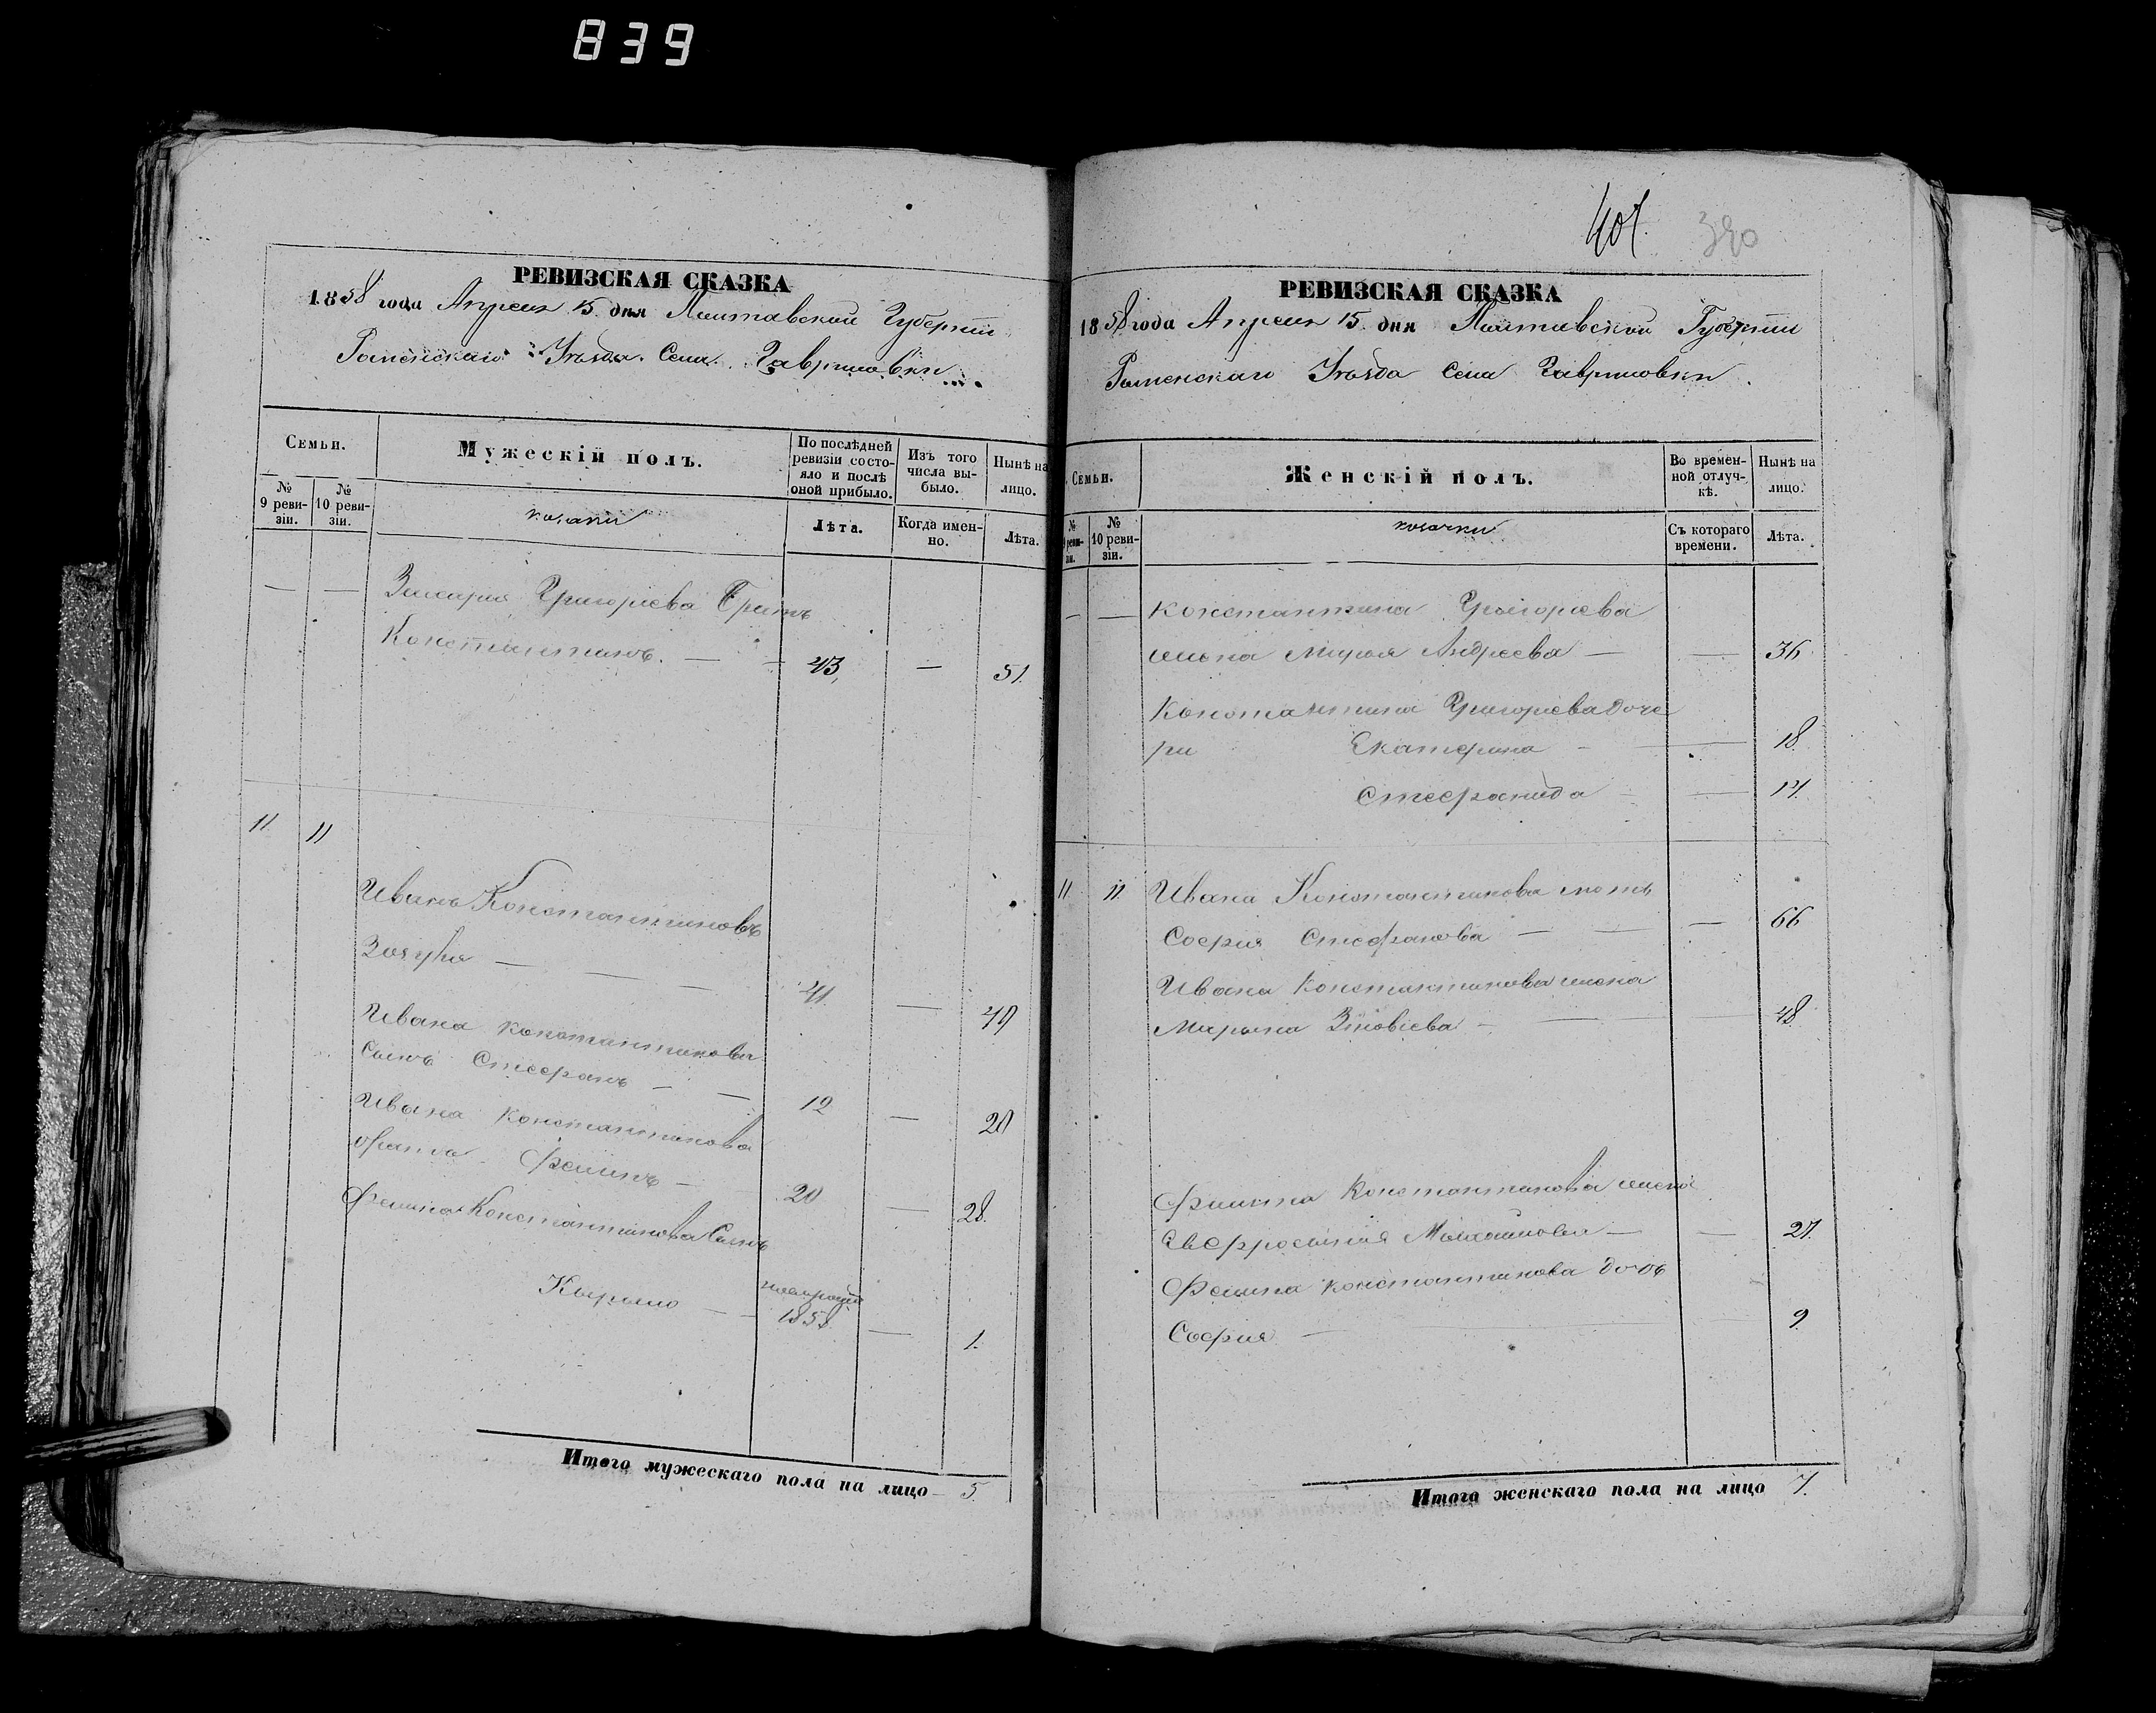 839
РЕВИЗСКАЯ СКАЗКА
1858 года Апреля 15 дня Полтавской Губернии
Роменскаго Уѣзда Села Гавриловки
Семьи.
Мужескій полъ.
По послѣдней ревизіи состо-
яло и послѣ
оной прибыло.
Изъ того
числа вы-
было.
Нынѣ на
лицо.
№
9 реви-
зіи.
№
10 реви-
зіи.
козаки
Лѣта.
Когда имен-
но.
Лѣта.
— — Григорьева братъ
Константинъ. — 43, — 51.
11 11
Иванъ Константиновъ
— 41. — 49
Ивана Константинова
сынъ Стефанъ — 12 — 20
Ивана Константинова
братъ — 20 — 28.
Константинова сынъ
1858. — 1.
Итого мужескаго пола на лицо 5.
401. 390
РЕВИЗСКАЯ СКАЗКА
1858 года Апреля 15 дня Полтавской Губернии
Роменскаго Уѣзда Села Гавриловки.
Семьи.
Женскій полъ.
Во времен-
ной отлуч-
кѣ.
Нынѣ на
лицо.
№
реви-
зіи.
№
10 реви-
зіи.
козачки
Съ котораго
времени.
Лѣта.
— — Константина Григорьева
жена Марья Андреева — — 36
Константина Григорьева доче
ри Екатерина — 18.
Стефанида —
11 11 Ивана Константинова мать
София Стефанова — — 66
Ивана Константинова жена
Марьина Зіновіева — 48.
Константинова жена
Михайлова — — 27.
Константинова дочь
София — 9.
Итого женскаго пола на лицо 7.